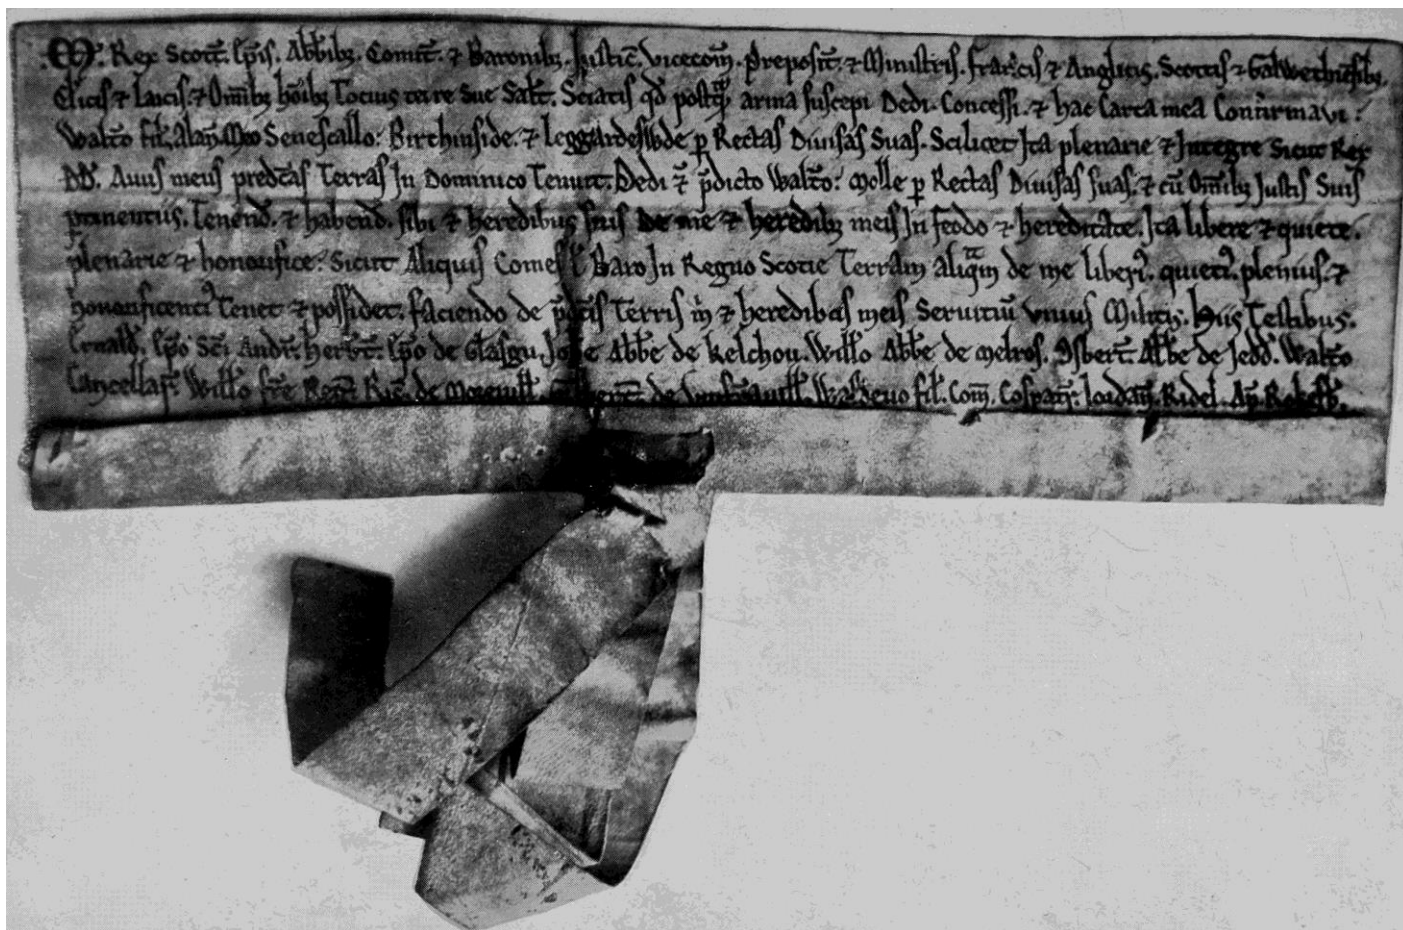 .M'. Rex Scott. Ep̄is. Abb̄ibȝ. Comit̄. ⁊ Baronibȝ. Justic̄. Vicecom̄. Preposit̄. ⁊ Ministris. Francis ⁊ Anglicis. Scottis ⁊ Galwethiēsibȝ.
Cl̄icis ⁊ Laicis. ⁊ Om̄ibȝ ho̅ibȝ Tocius terre Sue Sal̄t. Sciatis qd̄ postqᵃ̄ arma suscepi Dedi. Concessi. ⁊ hac Carta mea Confirmavi:
Walt̄o fil̄. Alan̄. Meo Senescallo: Birchinside. ⁊ Leggardeswde ꝑ Rectas Diuisas Suas. Scilicet Ita plenarie ⁊ Integre Sicut Rex
DD̄. Auus meus predc̄as Terras In Dominico Tenuit. Dedi ⁊̄ p̄dicto Walt̄o: Molle ꝑ Rectas Diuisas suas. ⁊ cū Om̄ibȝ Justis Suis
ꝑtinentiis. Tenend̄. ⁊ habend̄. sibi ⁊ heredibus suis De me ⁊ heredibȝ meis In feodo ⁊ hereditate. Ita libere ⁊ quiete.
plenarie ⁊ honorifice: Sicut Aliquis Comes l̄ Baro In Regno Scotie Terram aliqᵃm de me liberiꝰ. quietiꝰ. plenius. ⁊
honorificentiꝰ Tenet ⁊ possidet. faciendo de p̄dc̄is Terris m̄ ⁊ heredibus meis Seruitiū Vnius Militis. Hiis Testibus.
Ernald̄. Ep̄o Sc̄i Andr̄. Herb̄t. Ep̄o de Glasgu. Joh̄e Abb̄e de Kelchou. Will̄o Abb̄e de Melros. Osbert̄. Abb̄e de Jedd̄. Walt̄o
Cancellar̄. Will̄o fr̄e Reg̅. Ric̄. de Morevill̄. de Waldeuo fil̄. Com̄. Cospatric̄. Jordan̄. Ridel. Ap̄ Rokesb̄.